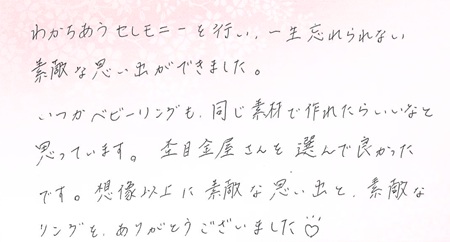 わかちあうセレモニーを行い、一生忘れられない
素敵な思い出ができました。
いつかベビーリングも、同じ素材で作れたらいいなと
思っています。杢目金屋さんを選んで良かった
です。想像以上に素敵な思い出と、素敵な
リングを、ありがとうございました♡